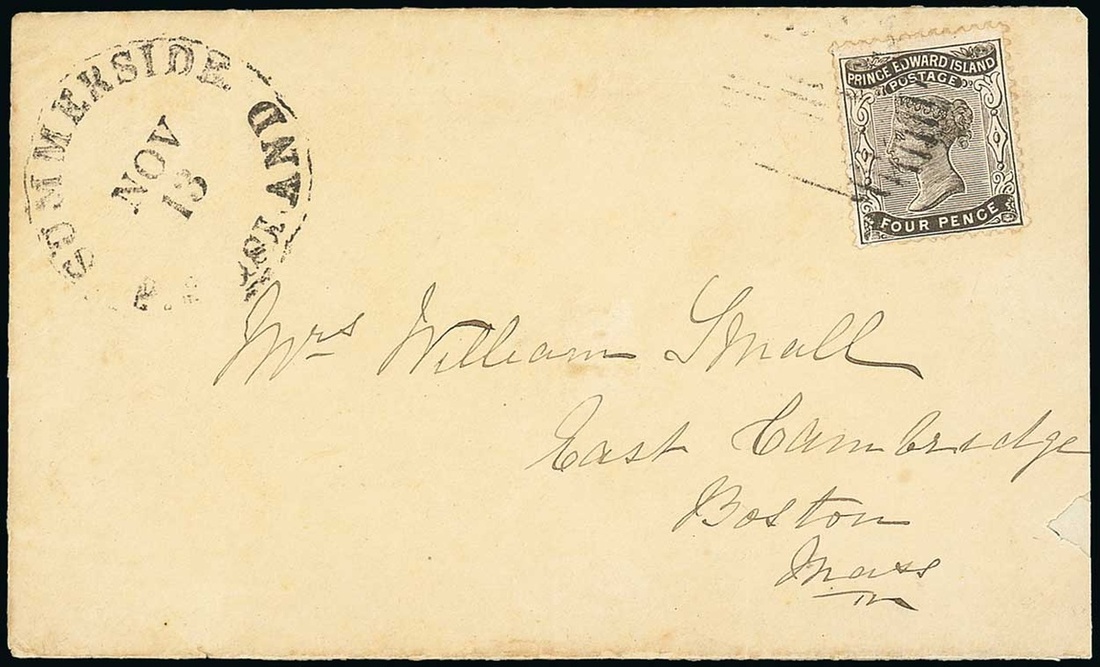 SUMMERSIDE
NOV
13
ISLAND
PRINCE EDWARD ISLAND
POSTAGE
FOUR PENCE
Mrs William Small
East Cambridge
Boston
Mass